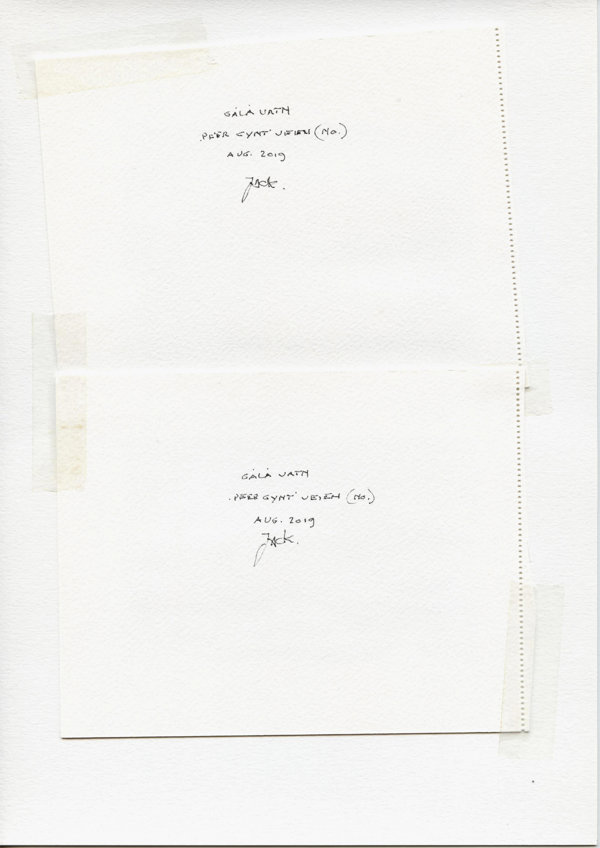 GÅLÅ VATN
'PEER GYNT' VEIEN (NO.)
AUG. 2019
JACK.
GÅLÅ VATN
'PEER GYNT' VEIEN (NO.)
AUG. 2019
JACK.